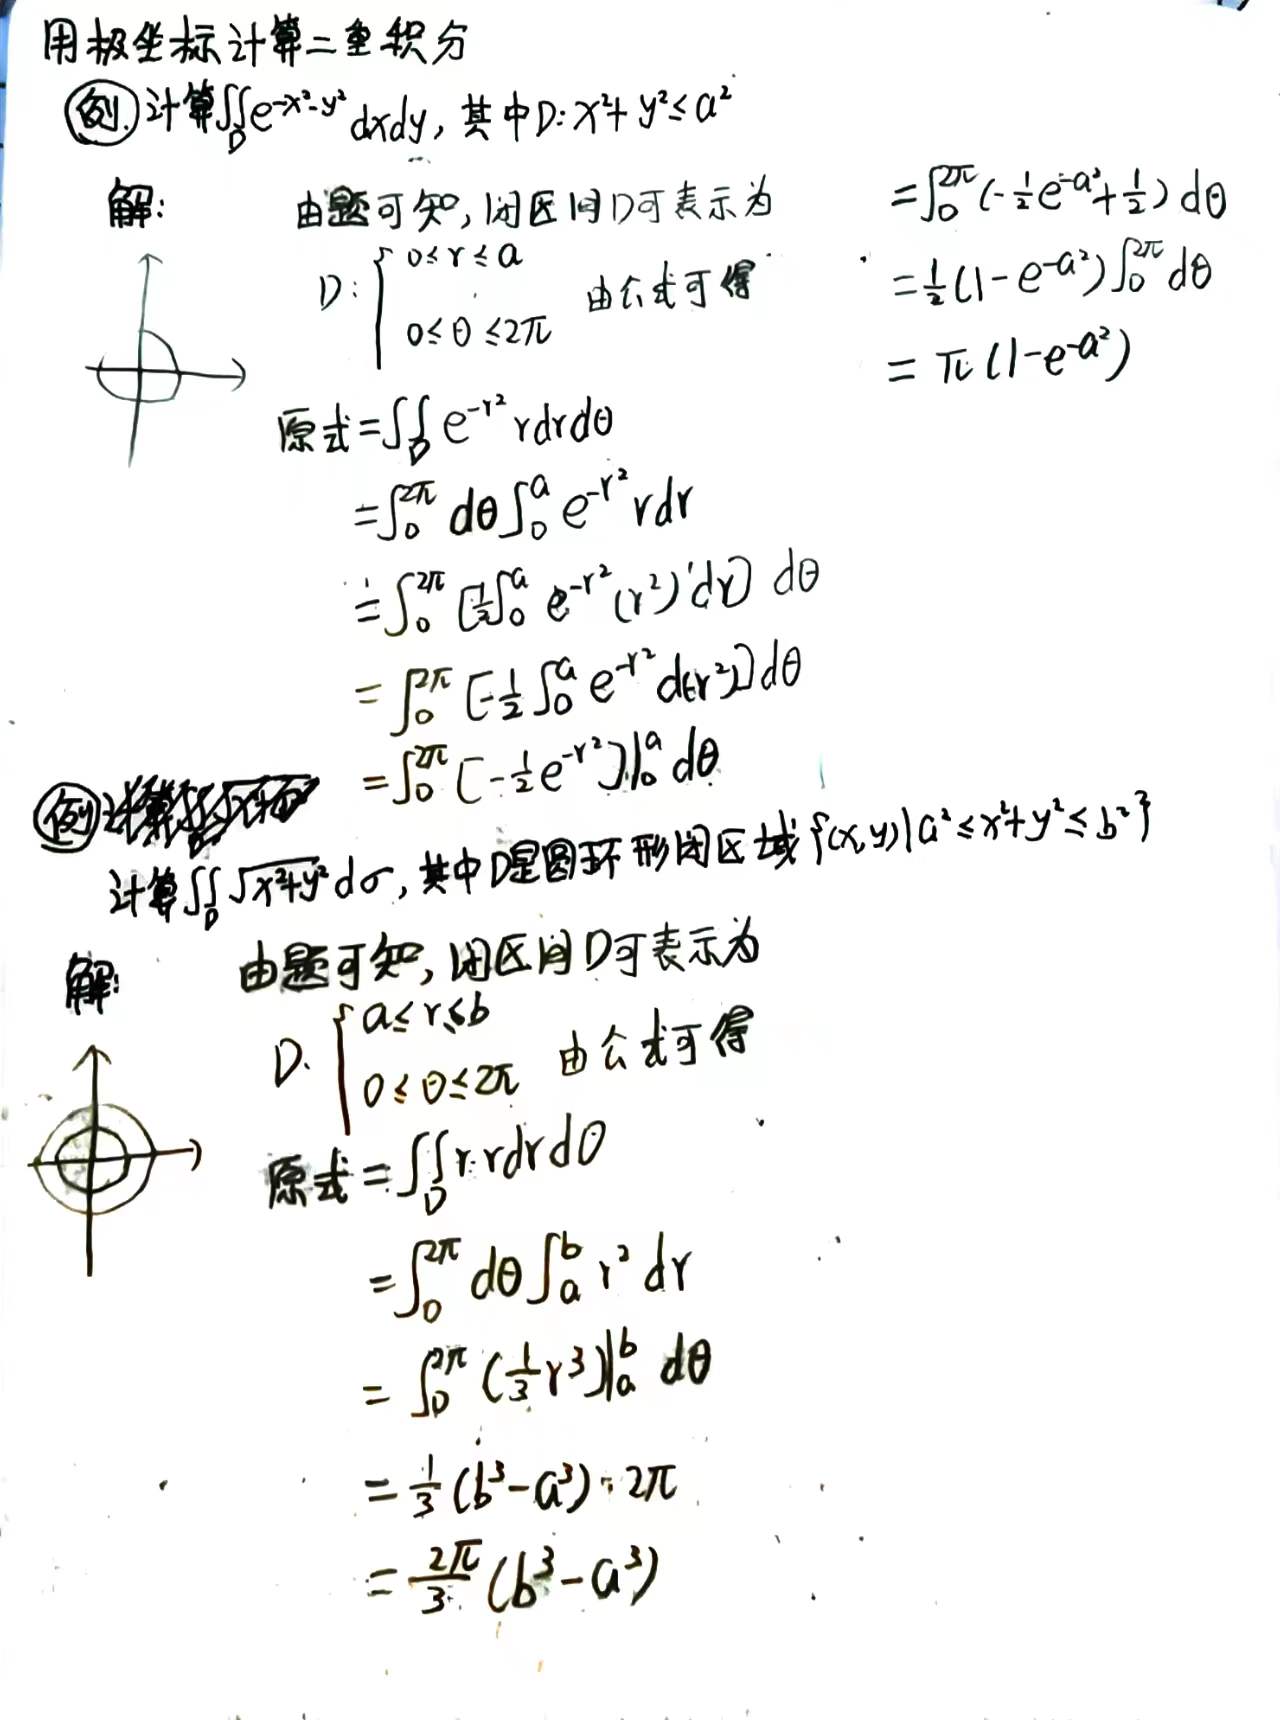 用极坐标计算二重积分
例.计算∬_D e^{-x²-y²} dxdy, 其中D: x²+y²≤a²
解: 由题可知, 闭区间D可表示为
D: { 0≤r≤a
0≤θ≤2π 由公式可得
原式=∬_D e^{-r²} rdrdθ
=∫_0^{2π} dθ∫_0^a e^{-r²} rdr
=∫_0^{2π} [½∫_0^a e^{-r²}(r²)'dr] dθ
=∫_0^{2π} [-½∫_0^a e^{-r²} d(-r²)]dθ
=∫_0^{2π} [-½e^{-r²}]|_0^a dθ
=∫_0^{2π} (-½e^{-a²}+½) dθ
=½(1-e^{-a²})∫_0^{2π} dθ
=π(1-e^{-a²})
例
计算∬_D √(x²+y²) dσ, 其中D是圆环形闭区域{(x,y)|a²≤x²+y²≤b²}
解: 由题可知, 闭区间D可表示为
D: { a≤r≤b
0≤θ≤2π 由公式可得
原式=∬_D r·rdrdθ
=∫_0^{2π} dθ∫_a^b r² dr
=∫_0^{2π} (⅓r³)|_a^b dθ
=⅓(b³-a³)·2π
=2π/3 (b³-a³)